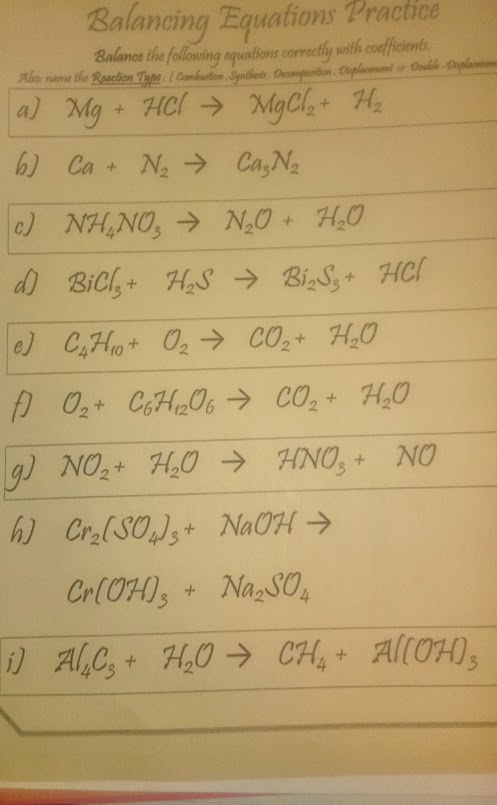 Balancing Equations Practice
Balance the following equations correctly with coefficients.
Also: name the Reaction Type: ( Combustion, Synthesis, Decomposition, Displacement or Double-Displacement
a) Mg + HCl → MgCl₂ + H₂
b) Ca + N₂ → Ca₃N₂
c) NH₄NO₃ → N₂O + H₂O
d) BiCl₃ + H₂S → Bi₂S₃ + HCl
e) C₄H₁₀ + O₂ → CO₂ + H₂O
f) O₂ + C₆H₁₂O₆ → CO₂ + H₂O
g) NO₂ + H₂O → HNO₃ + NO
h) Cr₂(SO₄)₃ + NaOH →
Cr(OH)₃ + Na₂SO₄
i) Al₄C₃ + H₂O → CH₄ + Al(OH)₃